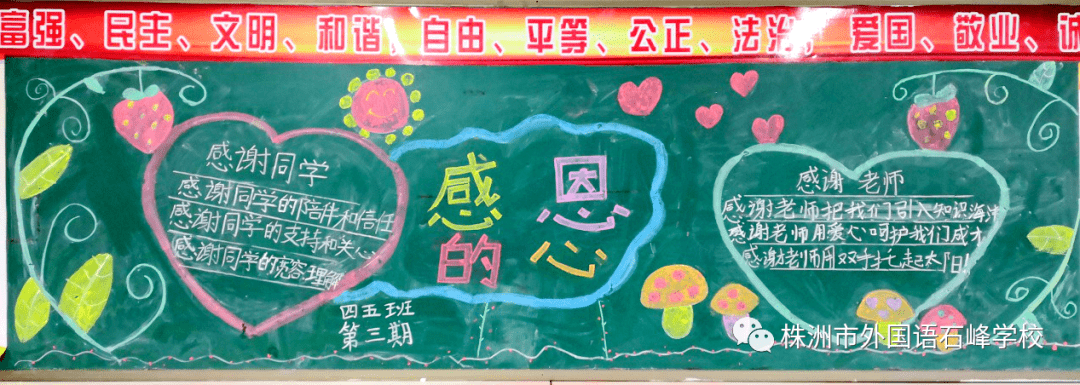 富强、民主、文明、和谐，自由、平等、公正、法治， 爱国、敬业、诚
感谢同学
感谢同学的陪伴和信任
感谢同学的支持和关心
感谢同学的宽容理解
感恩
的心
四五班
第三期
感谢 老师
感谢老师把我们引入知识海洋
感谢老师用爱心呵护我们成才
感谢老师用双手托起太阳!
株洲市外国语石峰学校